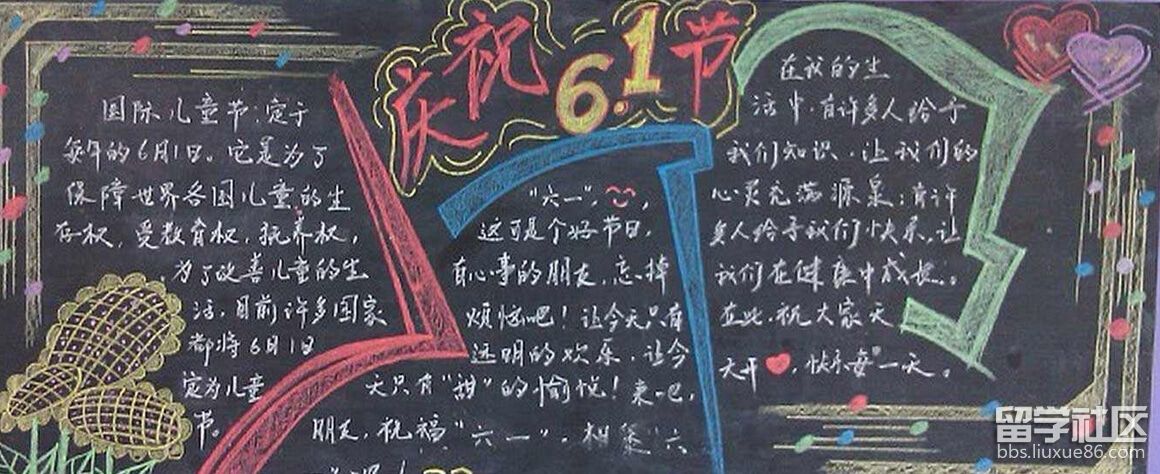 庆祝6.1节
国际儿童节:定于
每年的6月1日。它是为了
保障世界各国儿童的生
存权,受教育权,抚养权,
为了改善儿童的生
活,目前许多国家
都将6月1日
定为儿童
节。
"六一",
这可是个好节日,
有心事的朋友,忘掉
烦恼吧!让今天只有
透明的欢乐,让今
天只有"甜"的愉悦!来吧,
朋友,祝福"六一",相聚"六
在我的生
活中,有许多人给予
我们知识,让我们的
心灵充满源泉;有许
多人给予我们快乐,让
我们在健康中成长。
在此,祝大家天
大开,快乐每一天。
留学社区
bbs.liuxue86.com